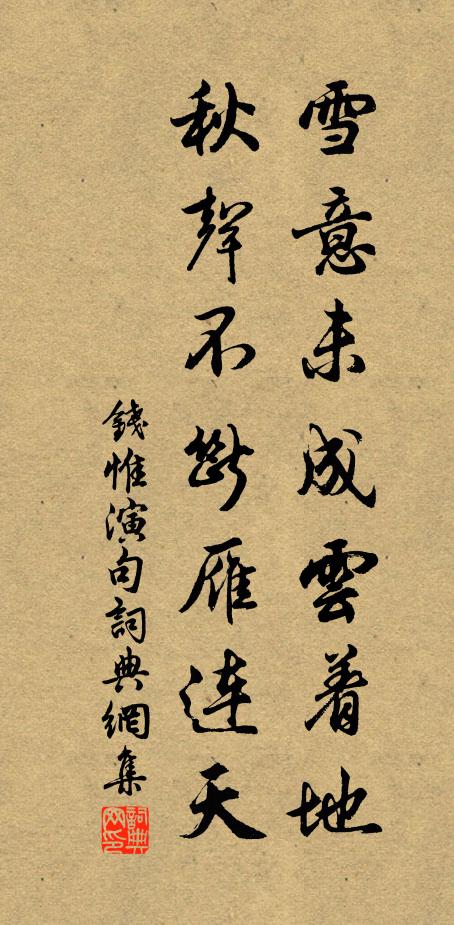 雪意未成雲着地
秋聲不斷雁連天
錢惟演句詞典網集
詞典网印